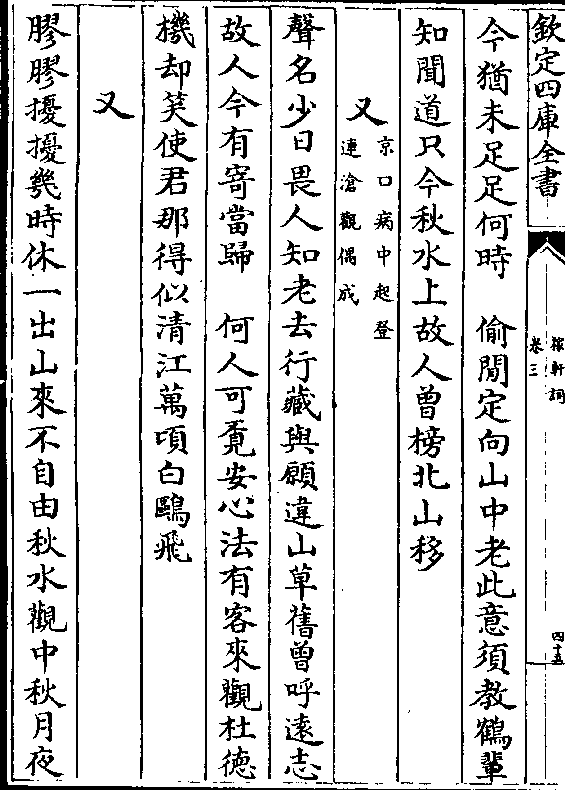 欽定四庫全書
稼軒詞
卷三
四十五
今猶未足足何時　偷閒定向山中老此意須教鶴輩
知聞道只今秋水上故人曾榜北山移
又京口病中起登
連滄觀偶成
聲名少日畏人知老去行藏與願違山草舊曾呼遠志
故人今有寄當歸　何人可覔安心法有客來觀杜德
機却笑使君那得似清江萬頃白鷗飛
又
膠膠擾擾幾時休一出山來不自由秋水觀中秋月夜